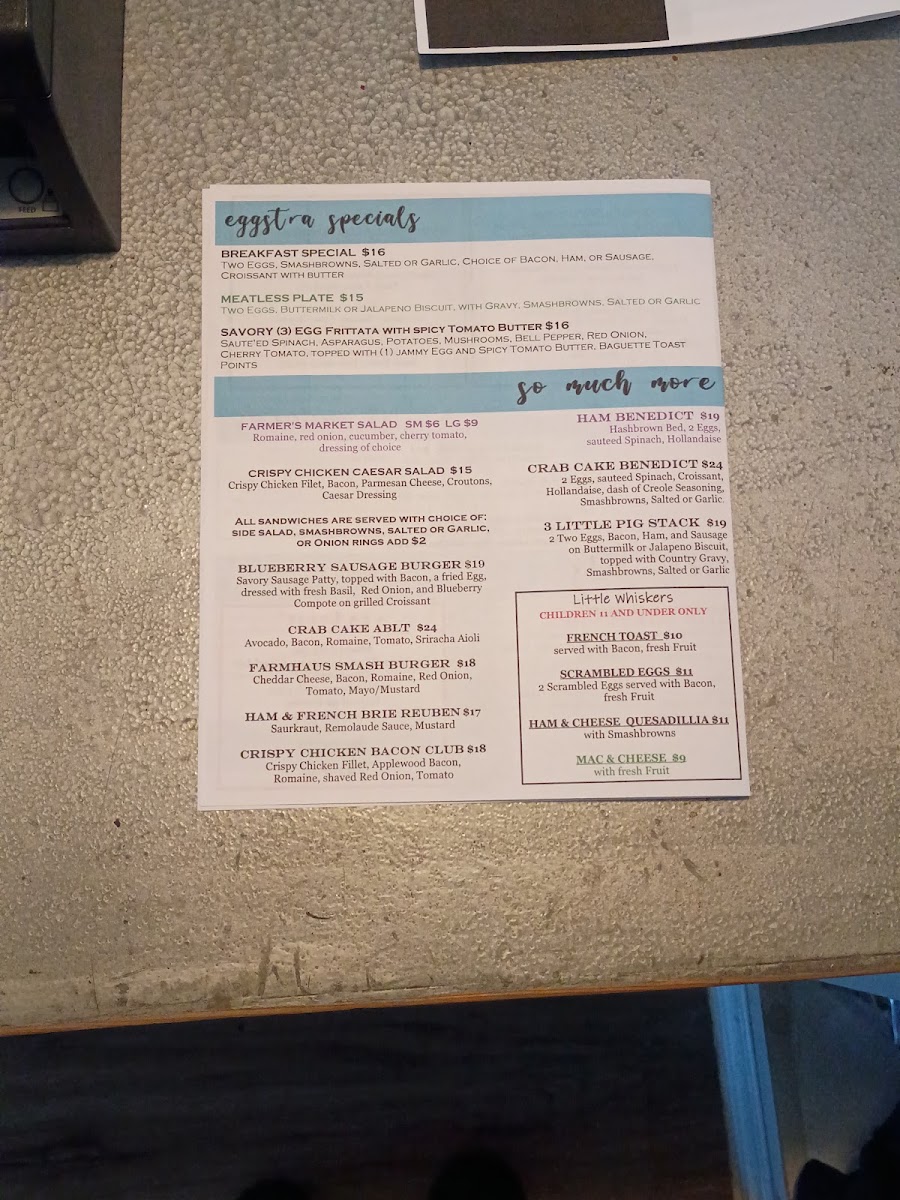 FEED
eggstra specials
BREAKFAST SPECIAL $16
TWO EGGS, SMASHBROWNS, SALTED OR GARLIC, CHOICE OF BACON, HAM, OR SAUSAGE,
CROISSANT WITH BUTTER
MEATLESS PLATE $15
TWO EGGS, BUTTERMILK OR JALAPENO BISCUIT, WITH GRAVY, SMASHBROWNS, SALTED OR GARLIC
SAVORY (3) EGG FRITTATA WITH SPICY TOMATO BUTTER $16
SAUTE'ED SPINACH, ASPARAGUS, POTATOES, MUSHROOMS, BELL PEPPER, RED ONION,
CHERRY TOMATO, TOPPED WITH (1) JAMMY EGG AND SPICY TOMATO BUTTER, BAGUETTE TOAST
POINTS
so much more
FARMER'S MARKET SALAD SM $6 LG $9
Romaine, red onion, cucumber, cherry tomato,
dressing of choice
CRISPY CHICKEN CAESAR SALAD $15
Crispy Chicken Filet, Bacon, Parmesan Cheese, Croutons,
Caesar Dressing
ALL SANDWICHES ARE SERVED WITH CHOICE OF:
SIDE SALAD, SMASHBROWNS, SALTED OR GARLIC,
OR ONION RINGS ADD $2
BLUEBERRY SAUSAGE BURGER $19
Savory Sausage Patty, topped with Bacon, a fried Egg,
dressed with fresh Basil, Red Onion, and Blueberry
Compote on grilled Croissant
CRAB CAKE ABLT $24
Avocado, Bacon, Romaine, Tomato, Sriracha Aioli
FARMHAUS SMASH BURGER $18
Cheddar Cheese, Bacon, Romaine, Red Onion,
Tomato, Mayo/Mustard
HAM & FRENCH BRIE REUBEN $17
Saurkraut, Remolaude Sauce, Mustard
CRISPY CHICKEN BACON CLUB $18
Crispy Chicken Fillet, Applewood Bacon,
Romaine, shaved Red Onion, Tomato
HAM BENEDICT $19
Hashbrown Bed, 2 Eggs,
sauteed Spinach, Hollandaise
CRAB CAKE BENEDICT $24
2 Eggs, sauteed Spinach, Croissant,
Hollandaise, dash of Creole Seasoning,
Smashbrowns, Salted or Garlic.
3 LITTLE PIG STACK $19
2 Two Eggs, Bacon, Ham, and Sausage
on Buttermilk or Jalapeno Biscuit,
topped with Country Gravy,
Smashbrowns, Salted or Garlic
Little Whiskers
CHILDREN 11 AND UNDER ONLY
FRENCH TOAST $10
served with Bacon, fresh Fruit
SCRAMBLED EGGS $11
2 Scrambled Eggs served with Bacon,
fresh Fruit
HAM & CHEESE QUESADILLIA $11
with Smashbrowns
MAC & CHEESE $9
with fresh Fruit